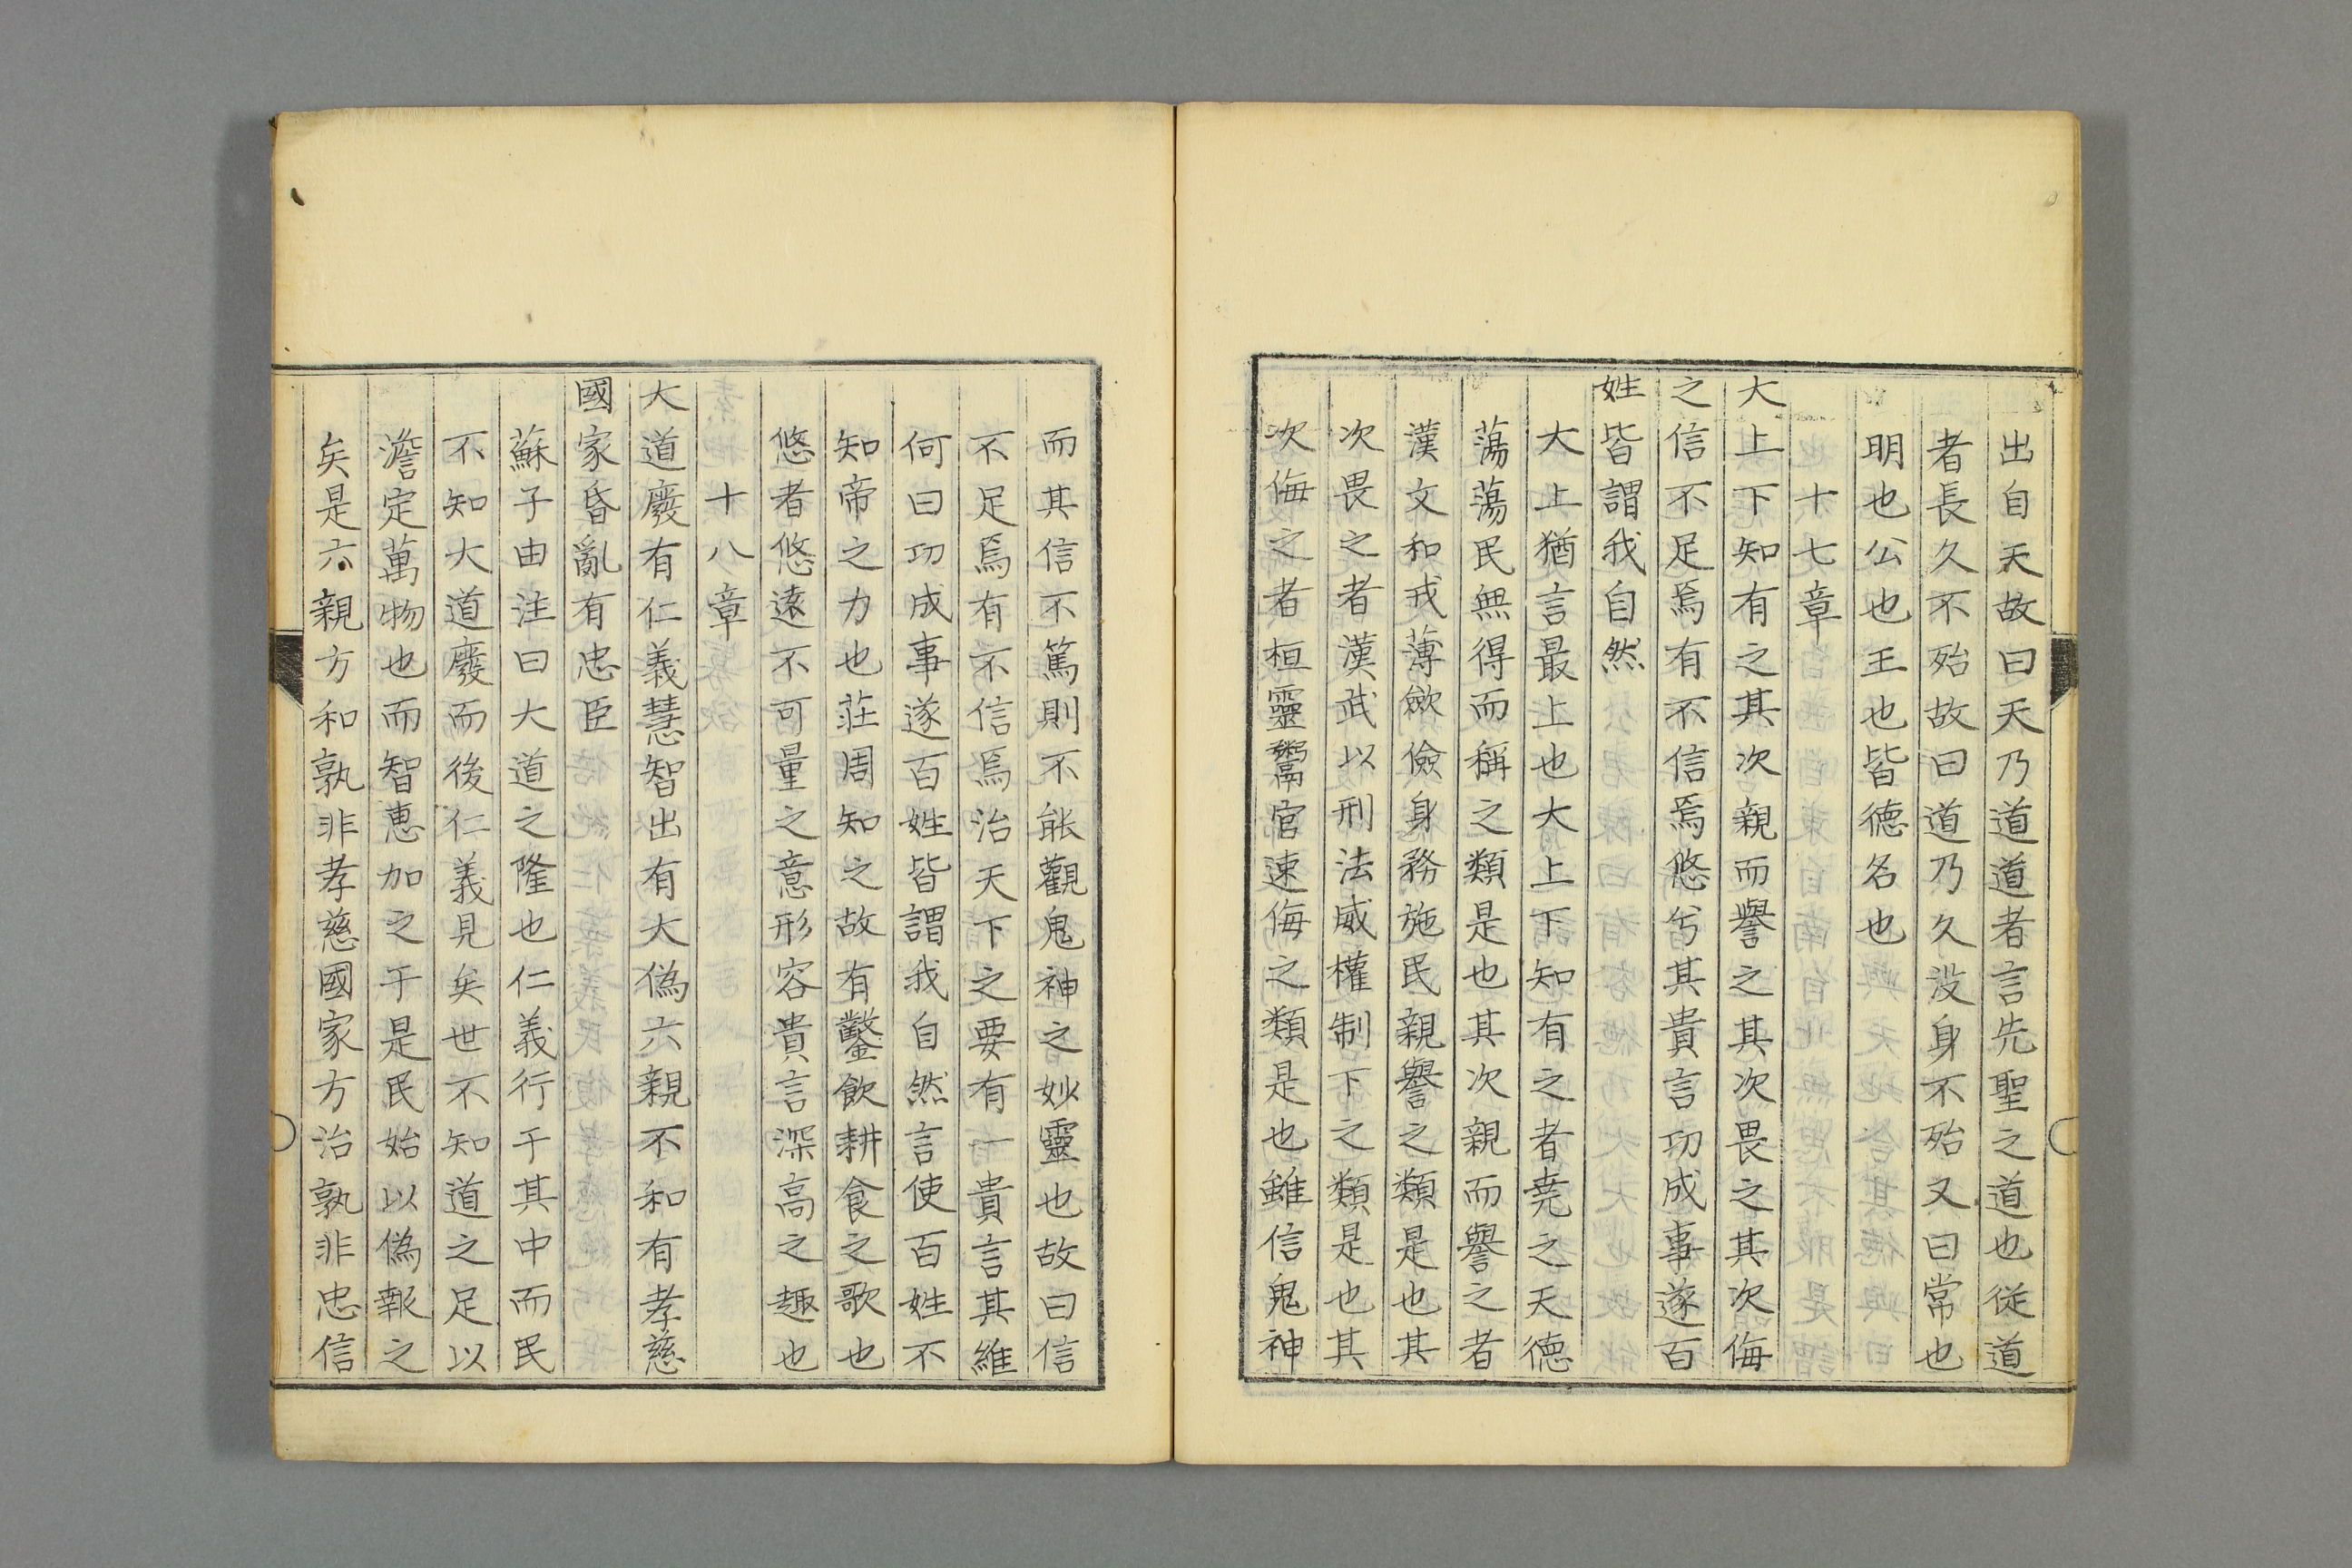 出自天故曰天乃道道者言先聖之道也従道
者長久不殆故曰道乃久没身不殆又曰常也
明也公也王也皆德名也
十七章
大上下知有之其次親而譽之其次畏之其次侮
之信不足焉有不信焉悠兮其貴言功成事遂百
姓皆謂我自然
大上猶言最上也大上下知有之者尭之天徳
蕩蕩民無得而稱之類是也其次親而譽之者
漢文和戎薄斂儉身務施民親譽之類是也其
次畏之者漢武以刑法威權制下之類是也其
次侮之者桓靈鬻官速侮之類是也雖信鬼神
而其信不篤則不能觀鬼神之妙靈也故曰信
不足焉有不信焉治天下之要有一貴言其維
何曰功成事遂百姓皆謂我自然言使百姓不
知帝之力也莊周知之故有鑿飲耕食之歌也
悠者悠遠不可量之意形容貴言深高之趣也
十八章
大道廢有仁義慧智出有大偽六親不和有孝慈
國家昏亂有忠臣
蘇子由注曰大道之隆也仁義行于其中而民
不知大道廢而後仁義見矣世不知道之足以
澹定萬物也而智惠加之于是民始以偽報之
矣是六親方和孰非孝慈國家方治孰非忠信